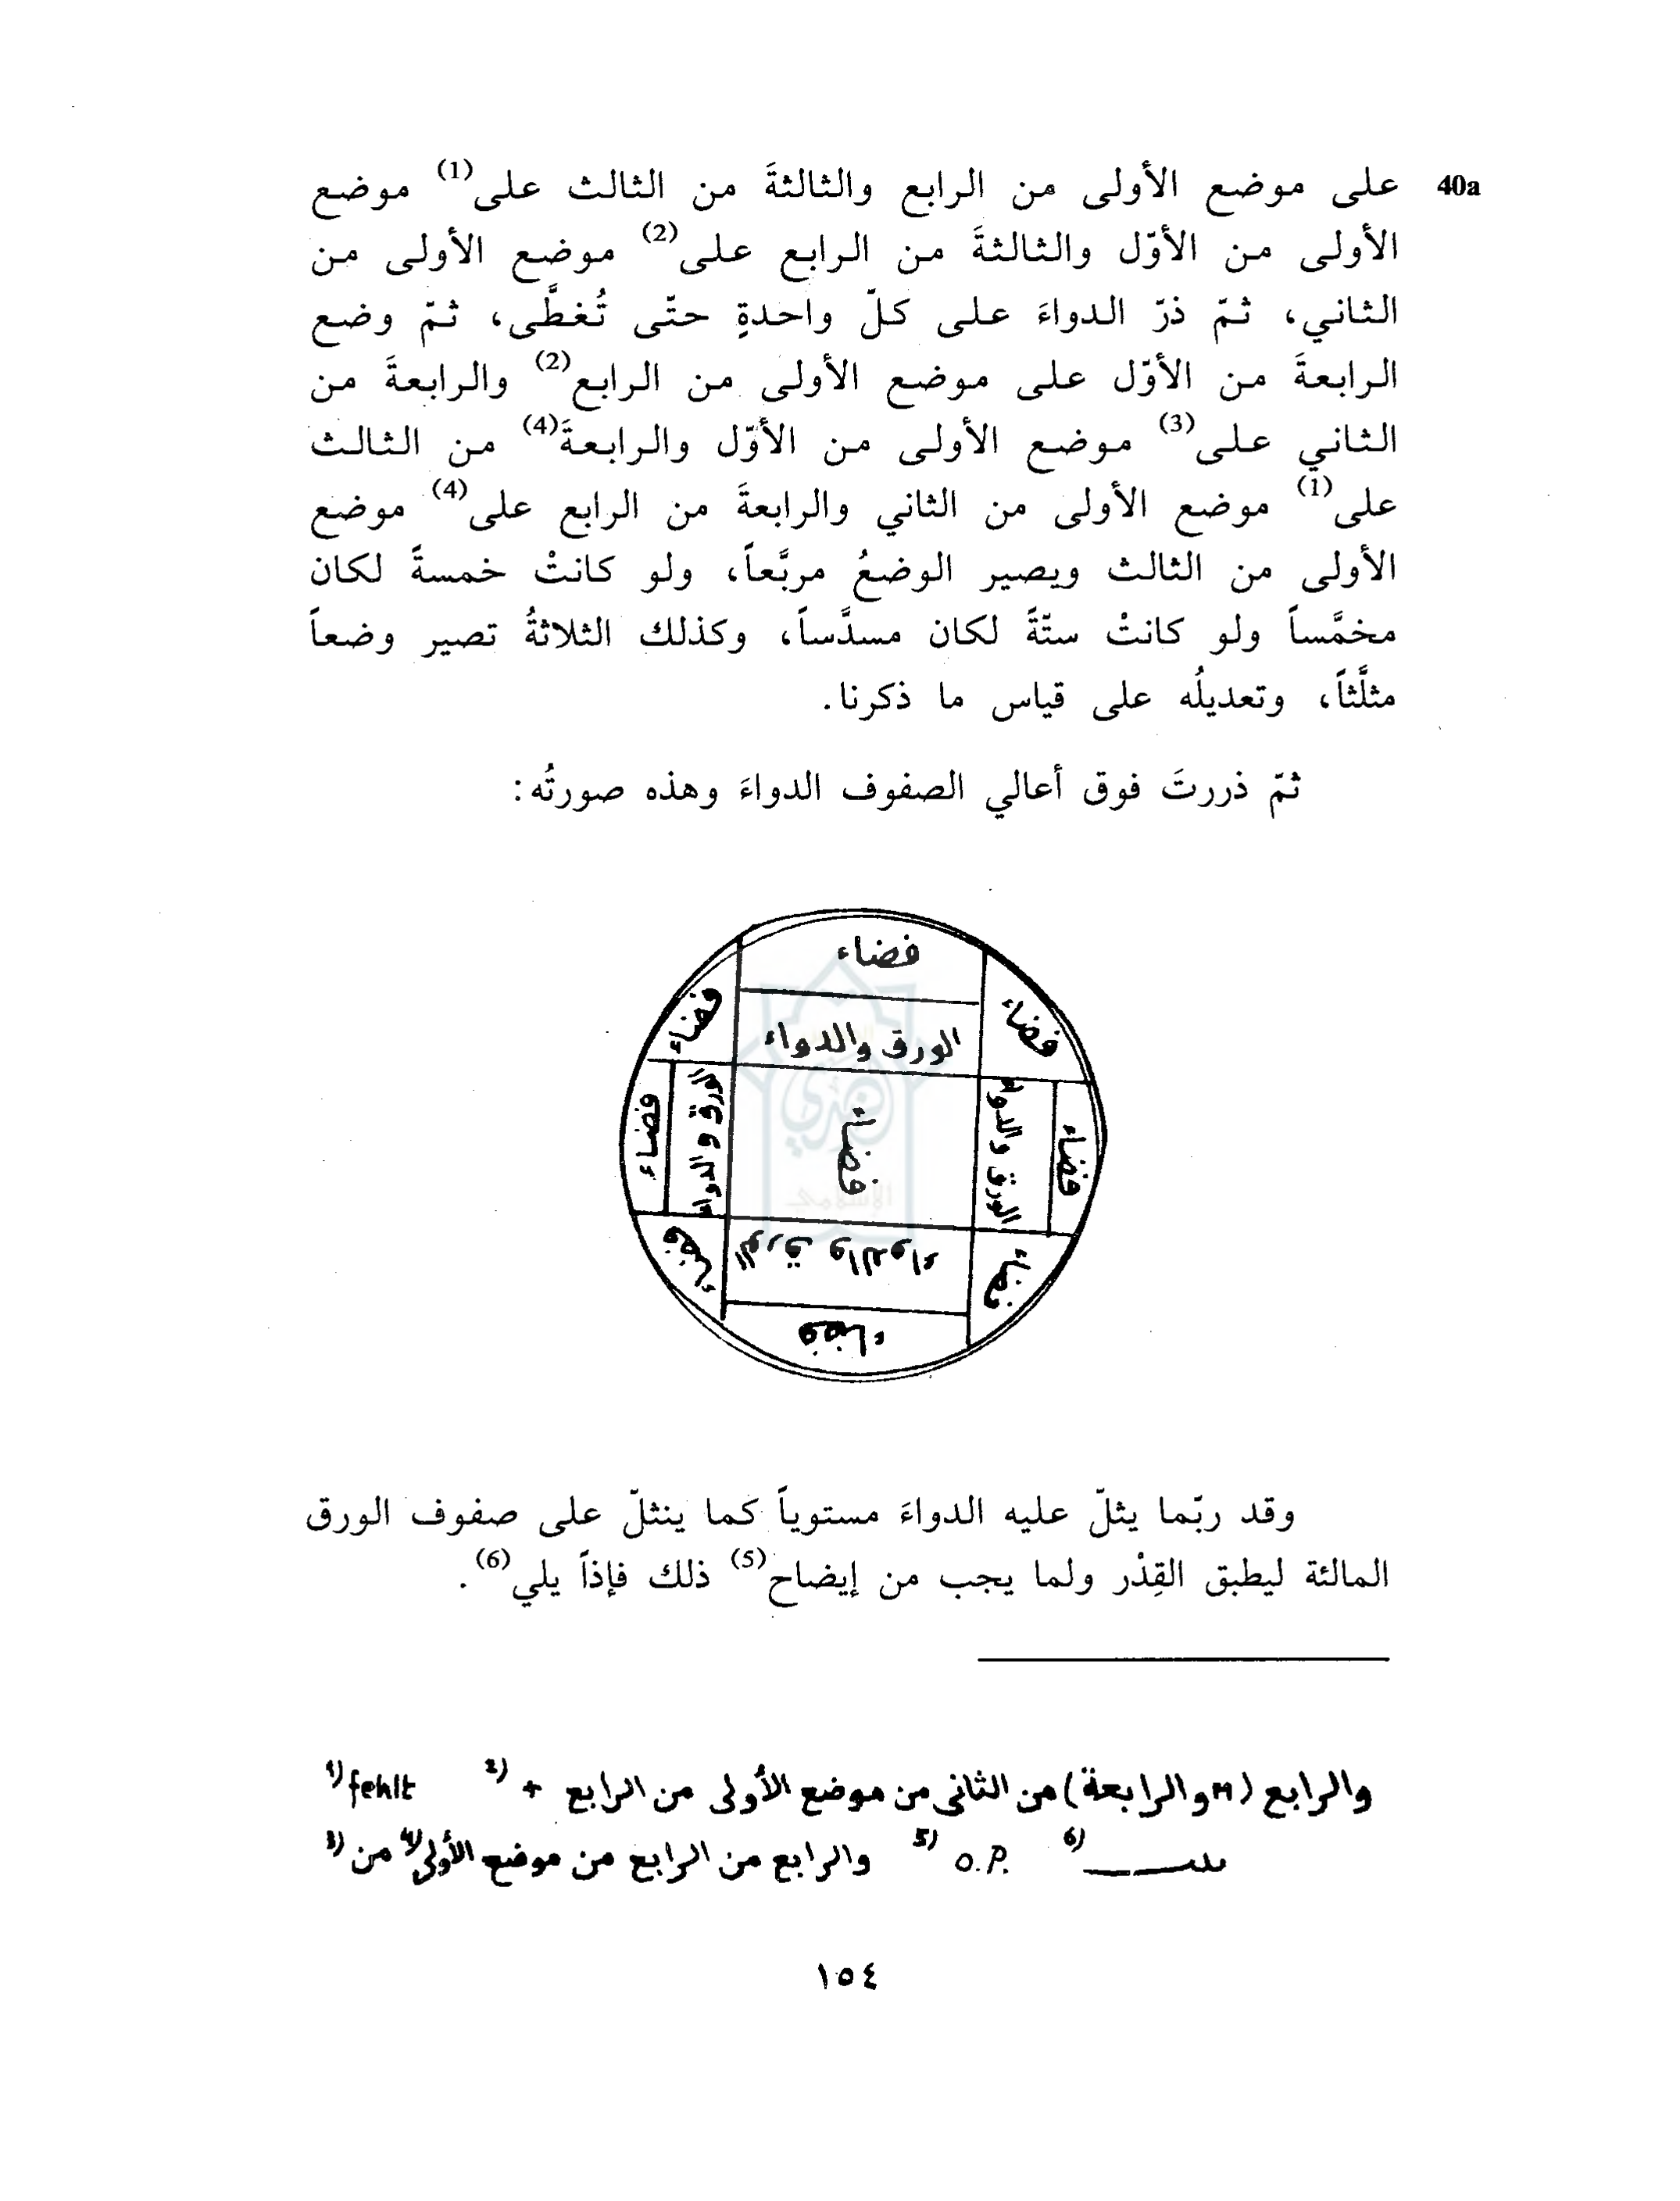 40a على موضع الأولى من الرابع والثالثةَ من الثالث على(1) موضع
الأولى من الأوّل والثالثةَ من الرابع على(2) موضع الأولى من
الثاني، ثمّ ذرّ الدواءَ على كلّ واحدةٍ حتّى تُغطَّى، ثمّ وضع
الرابعةَ من الأوّل على موضع الأولى من الرابع(2) والرابعةَ من
الثاني على(3) موضع الأولى من الأوّل والرابعةَ(4) من الثالث
على(1) موضع الأولى من الثاني والرابعةَ من الرابع على(4) موضع
الأولى من الثالث ويصير الوضعُ مربَّعاً، ولو كانتْ خمسةً لكان
مخمَّساً ولو كانتْ ستّةً لكان مسدَّساً، وكذلك الثلاثةُ تصير وضعاً
مثلَّثاً، وتعديلُه على قياس ما ذكرنا.
ثمّ ذررتَ فوق أعالي الصفوف الدواءَ وهذه صورتُه:
فضاء
فضاء
فضاء
الورق والدواء
فضاء
الورق والدواء
فضاء
الورق والدواء
فضاء
فضاء
الورق والدواء
فضاء
فضاء
وقد ربّما يثلّ عليه الدواءَ مستوياً كما ينثلّ على صفوف الورق
المالئة ليطبق القِدْر ولما يجب من إيضاح(5) ذلك فإذاً يلي(6).
1) fehlt 2) + والرابع (M والرابعة) من الثانى من موضع الأولى من الرابع
3) من 4) والرابع من الرابع من موضع الأولى 5) o.P. 6)
١٥٤